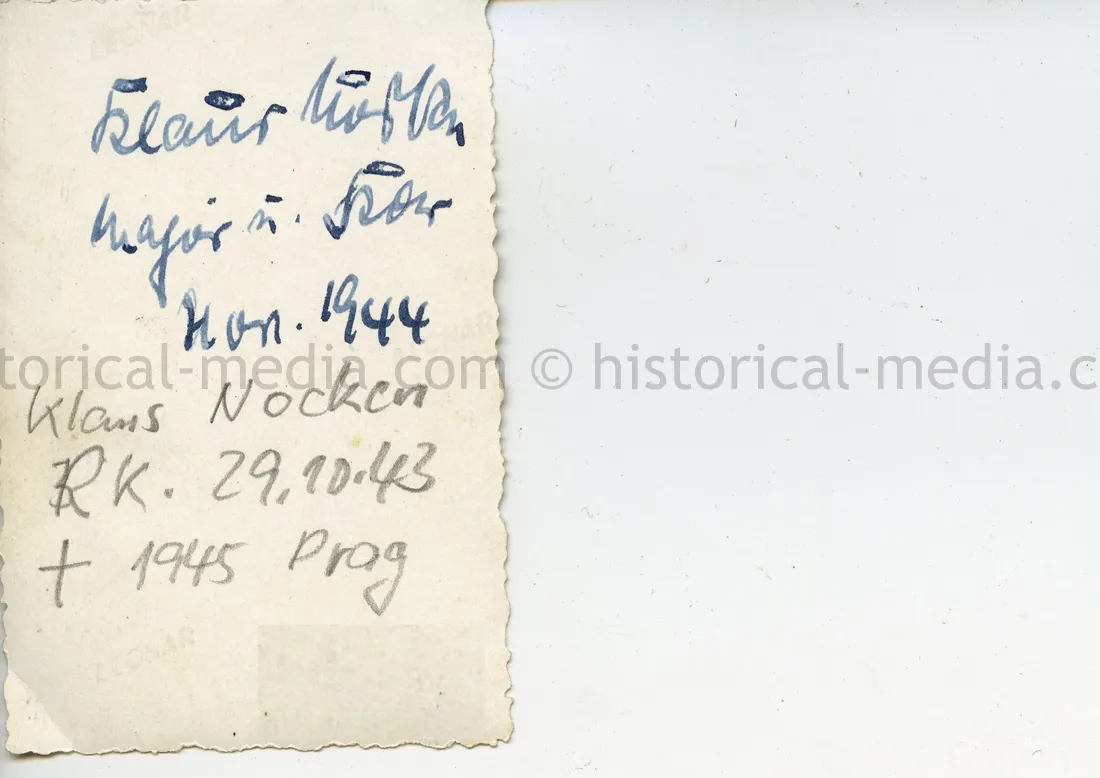 Klaus Nocken
Major u. Kdr
Nov. 1944
torical-media.com © historical-media.c
Klaus Nocken
RK. 29.10.43
† 1945 Prag
LEONAR